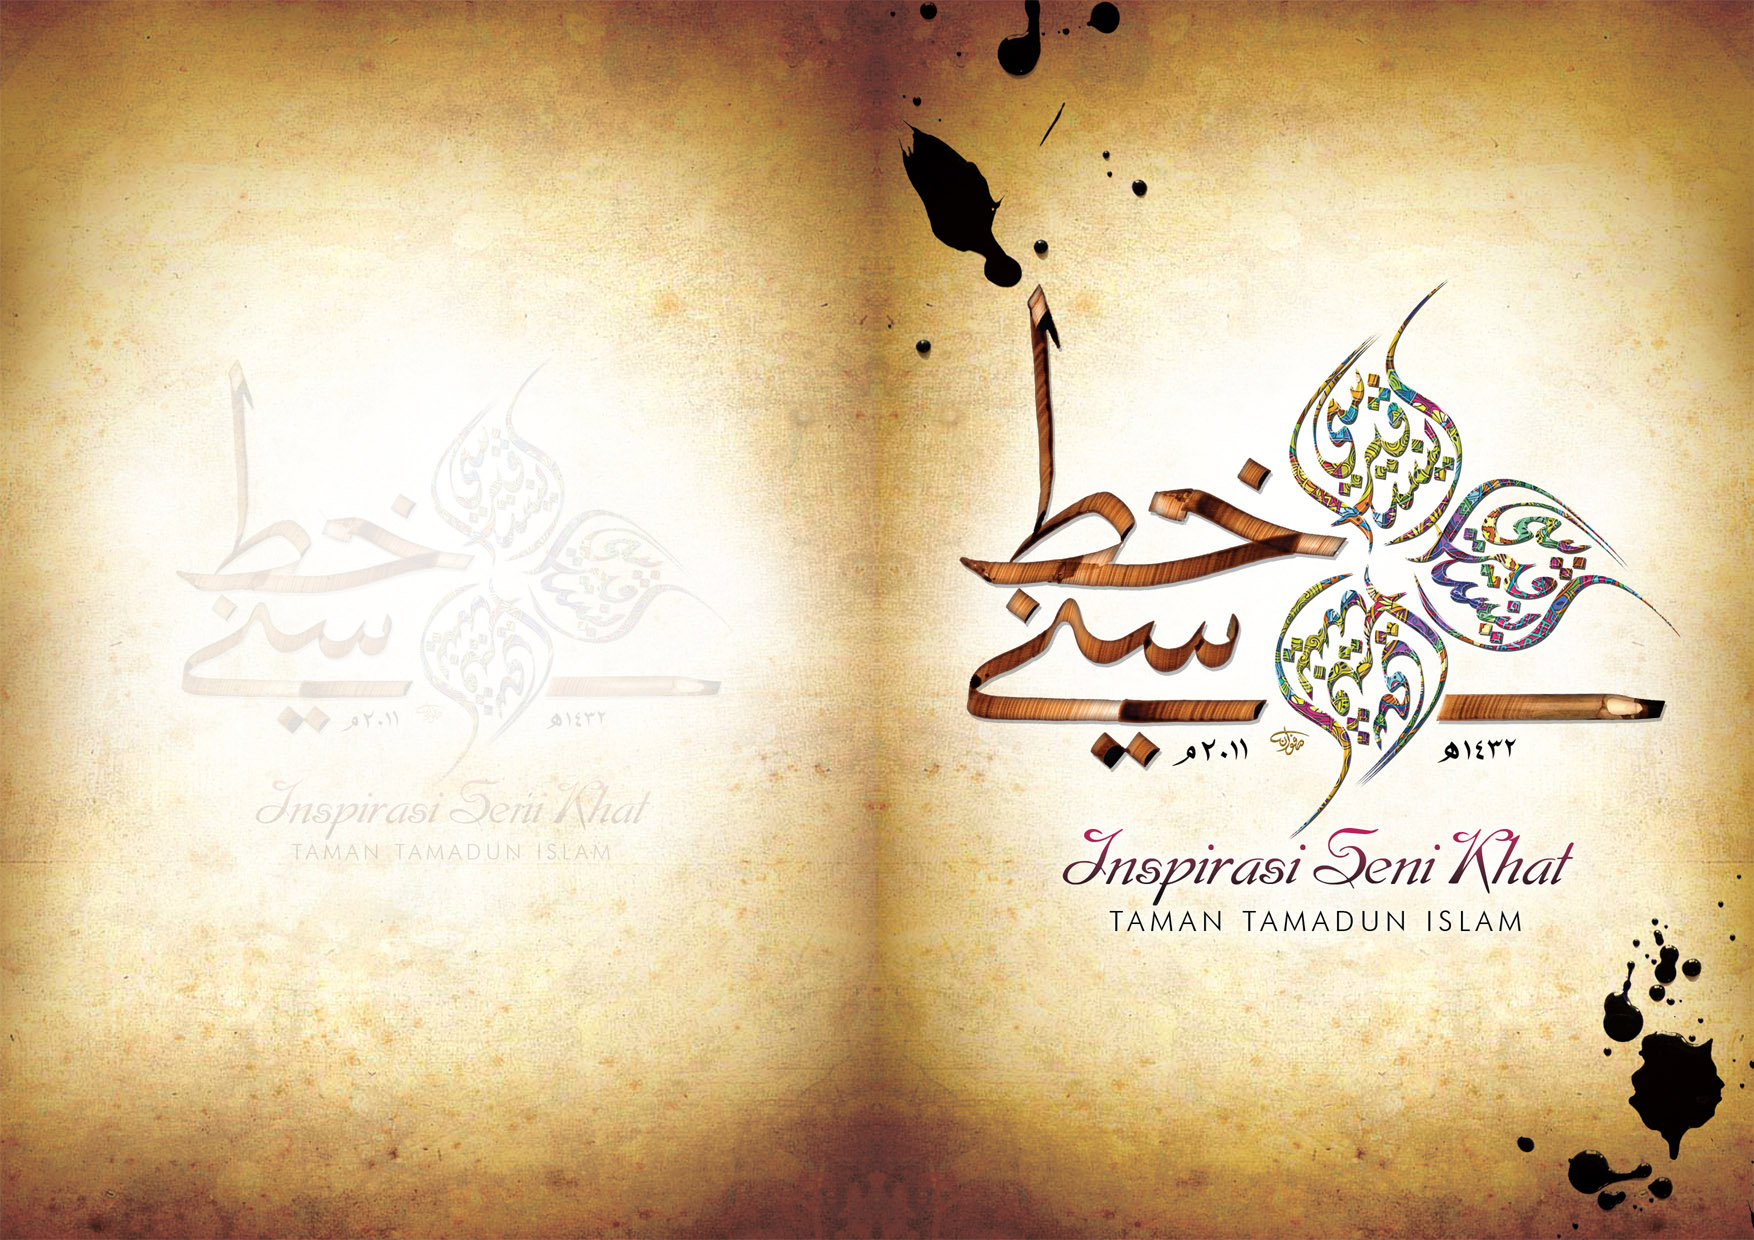 خط
سيني
١٤٣٢هـ ٢٠١١م
Inspirasi Seni Khat
TAMAN TAMADUN ISLAM
خط
سيني
١٤٣٢هـ ٢٠١١م
Inspirasi Seni Khat
TAMAN TAMADUN ISLAM